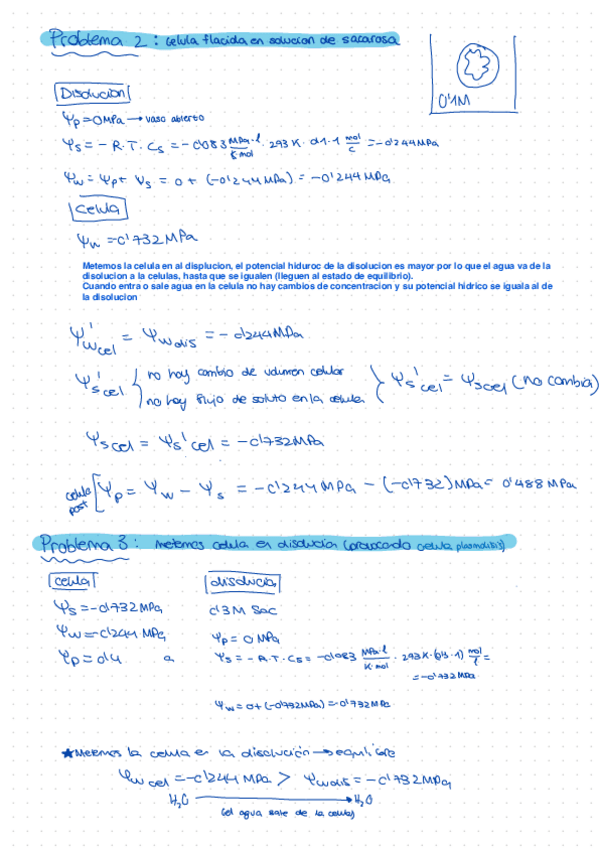 Problema 2 : celula flacida en solucion de sacarosa
0'1M
Disolucion
Ψp = 0 MPa → vaso abierto
Ψs = - R.T. Cs = - 0'083 MPa·l / K·mol · 293 K · 0'1·1 mol/l = -0'244 MPa
Ψw = Ψp + Ψs = 0 + (-0'244 MPa) = -0'244 MPa
Celula
Ψw = -0'732 MPa
Metemos la celula en al displucion, el potencial hiduroc de la disolucion es mayor por lo que el agua va de la
disolucion a la celulas, hasta que se igualen (lleguen al estado de equilibrio).
Cuando entra o sale agua en la celula no hay cambios de concentracion y su potencial hidrico se iguala al de
la disolucion
Ψ'w cel = Ψw dis = - 0'244 MPa
Ψ's cel { no hay cambio de volumen celular
no hay flujo de soluto en la celula } Ψs' cel = Ψs cel (no cambia)
Ψs cel = Ψs' cel = -0'732 MPa
celula post [ Ψp = Ψw - Ψs = -0'244 MPa - (-0'732) MPa = 0'488 MPa
Problema 3 : metemos celula en disolucion (provocando celula plasmolisis)
celula
disolucion
Ψs = -0'732 MPa
0'3M Sac
Ψw = -0'244 MPa
Ψp = 0 MPa
Ψp = 0'4 a
Ψs = - R.T. Cs = -0'083 MPa·l / K·mol · 293K · (0'3·1) mol/l =
= -0'732 MPa
Ψw = 0 + (-0'732 MPa) = -0'732 MPa
★ Metemos la celula en la disolucion → equilibrio
Ψw cel = -0'244 MPa > Ψw dis = -0'732 MPa
H₂O → H₂O
(el agua sale de la celula)